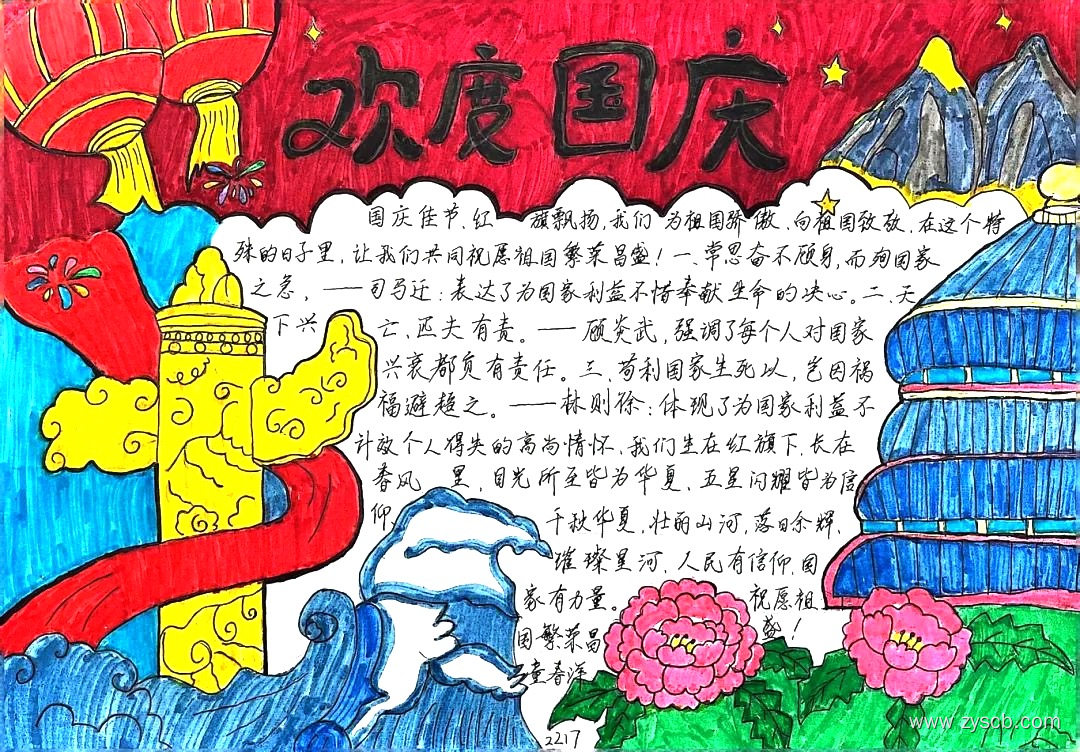 欢度国庆
国庆佳节,红一旗飘扬,我们为祖国骄傲、向祖国致敬,在这个特
殊的日子里,让我们共同祝愿祖国繁荣昌盛!一、常思奋不顾身,而殉国家
之急,——司马迁:表达了为国家利益不惜奉献生命的决心。二、天
下兴亡、匹夫有责。——顾炎武,强调了每个人对国家
兴衰都负有责任。三、苟利国家生死以,岂因祸
福避趋之。——林则徐:体现了为国家利益不
计较个人得失的高尚情怀,我们生在红旗下,长在
春风里,目光所至皆为华夏,五星闪耀皆为信
仰,千秋华夏,壮丽山河,落日余辉,
璀璨星河,人民有信仰,国
家有力量。祝愿祖
国繁荣昌盛!
童春洋
2217
www.zyscb.com